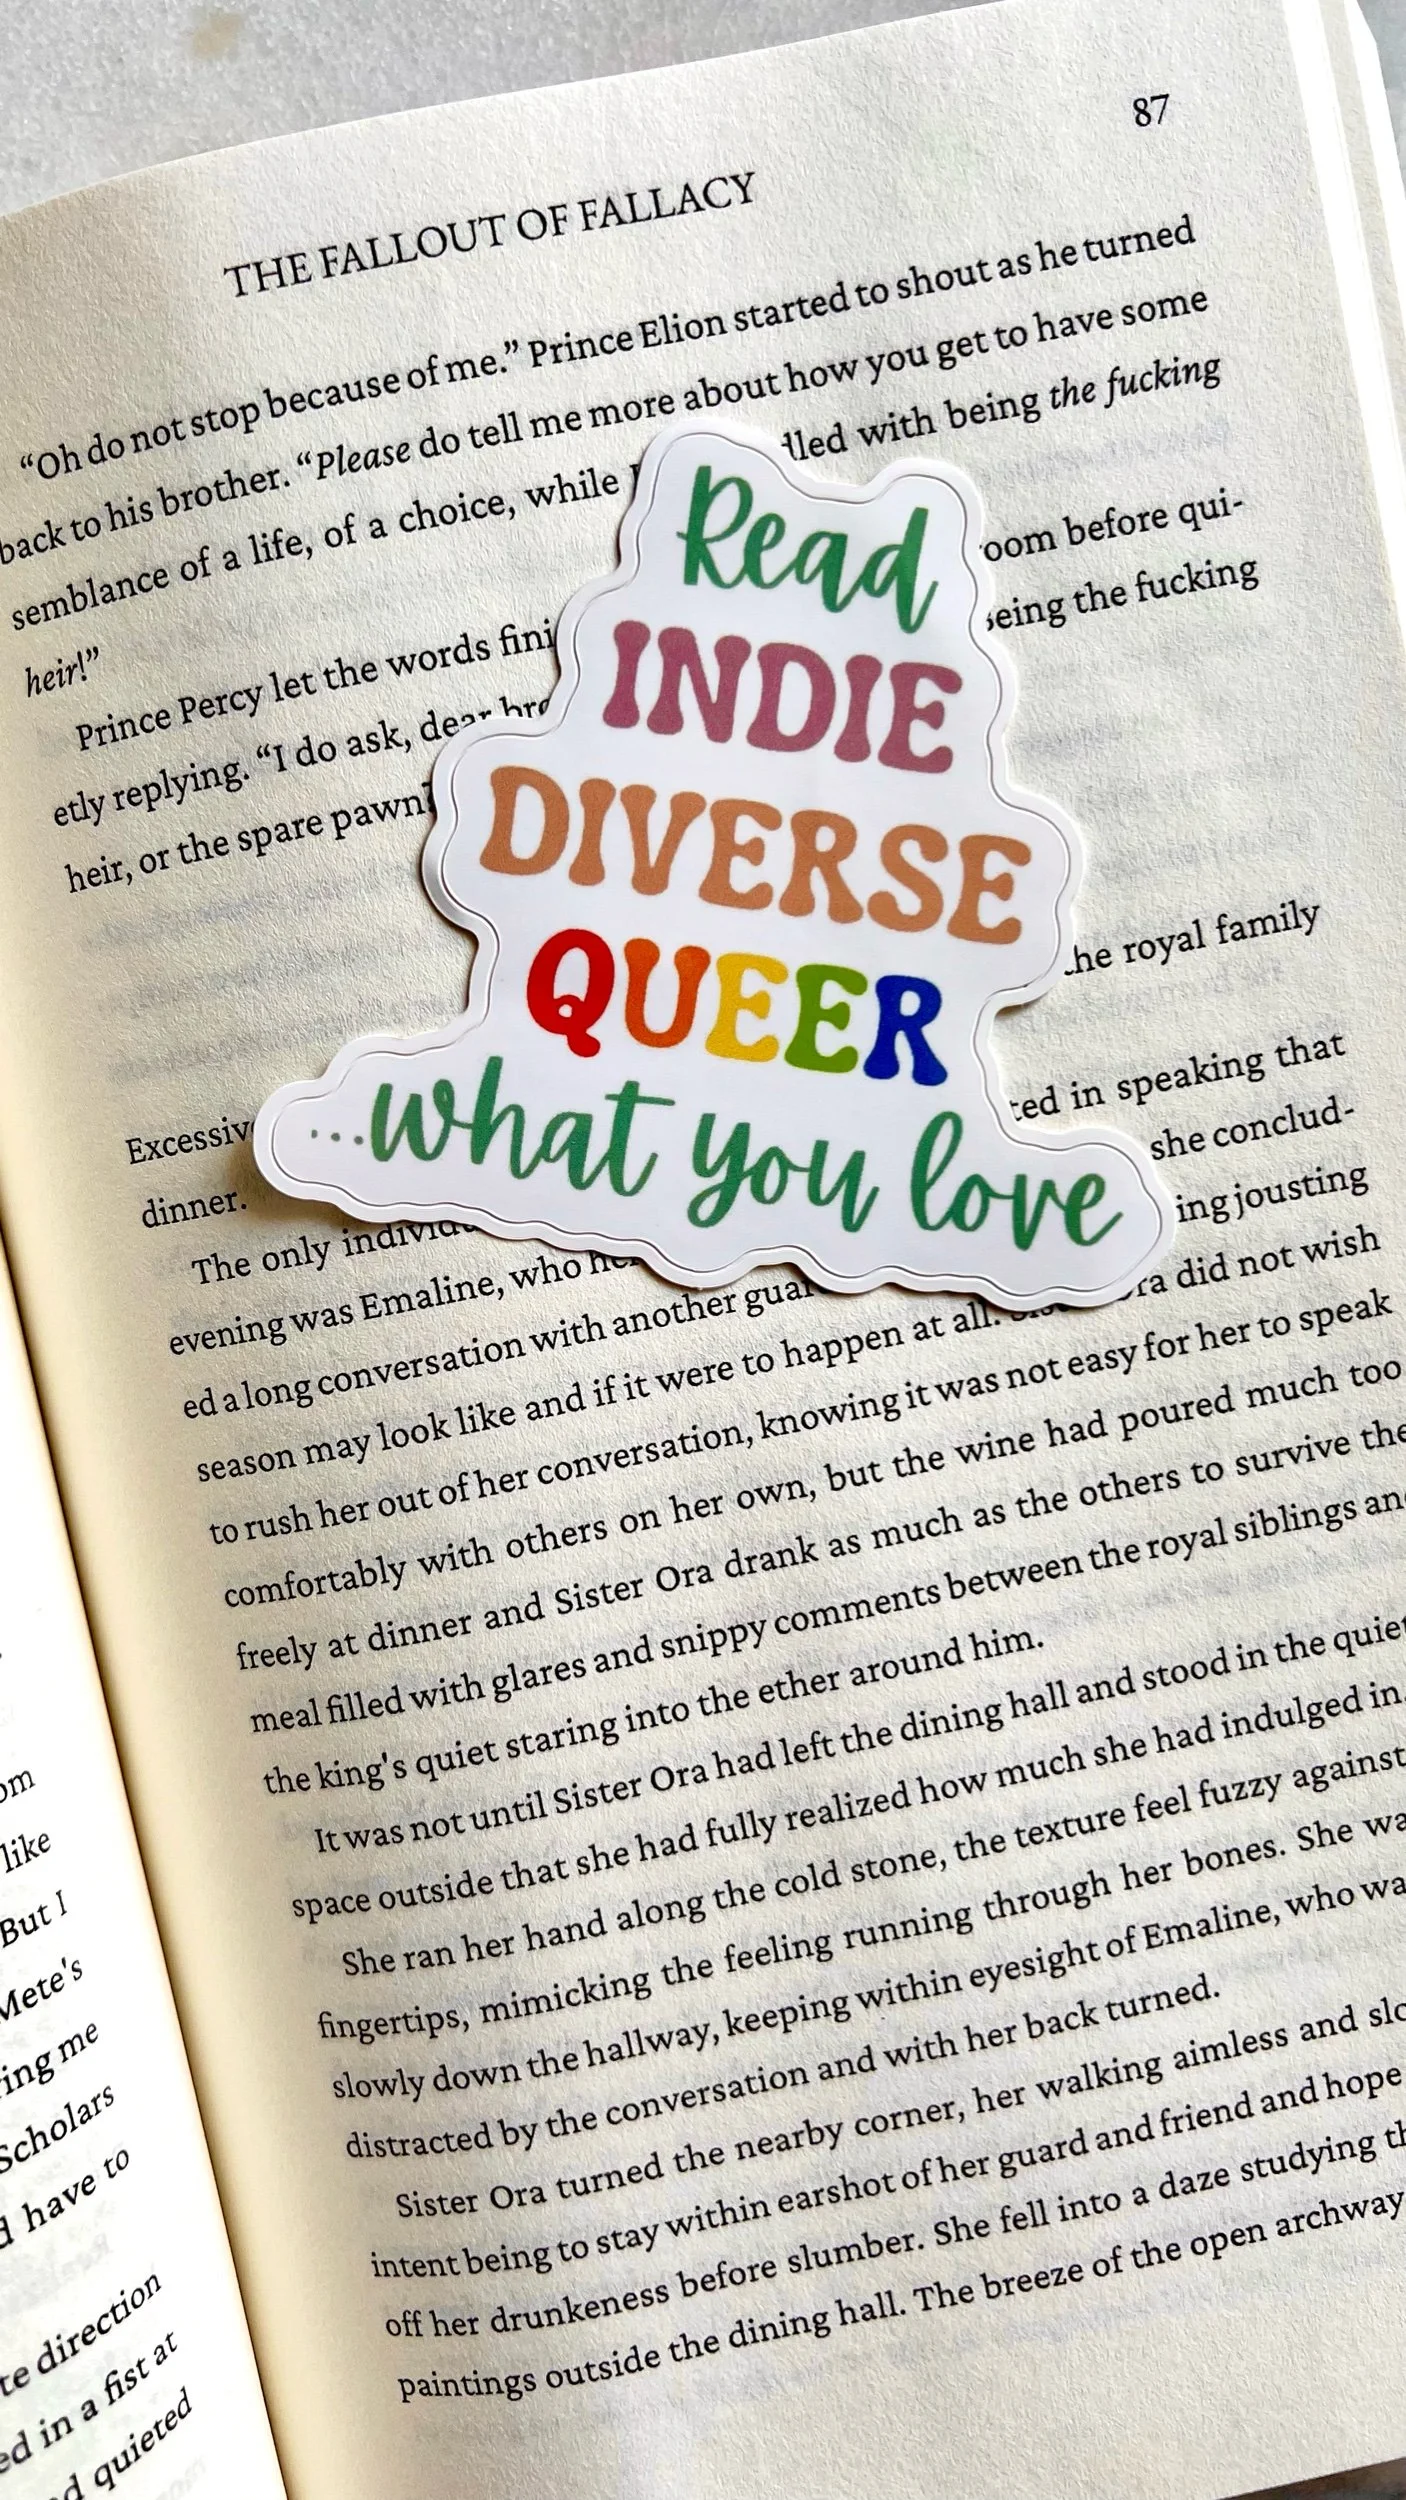 87
THE FALLOUT OF FALLACY
“Oh do not stop because of me.” Prince Elion started to shout as he turned
back to his brother. “Please do tell me more about how you get to have some
semblance of a life, of a choice, while dled with being the fucking
heir!”
Prince Percy let the words fini oom before qui-
etly replying. “I do ask, dear bro being the fucking
heir, or the spare pawn?
Read
INDIE
DIVERSE
QUEER
...what you love
the royal family
Excessive ted in speaking that
dinner. she conclud-
The only individu ing jousting
evening was Emaline, who he ra did not wish
ed a long conversation with another guar for her to speak
season may look like and if it were to happen at all. much too
to rush her out of her conversation, knowing it was not easy for her to speak
comfortably with others on her own, but the wine had poured much too
freely at dinner and Sister Ora drank as much as the others to survive the
meal filled with glares and snippy comments between the royal siblings and
the king's quiet staring into the ether around him.
It was not until Sister Ora had left the dining hall and stood in the quiet
space outside that she had fully realized how much she had indulged in.
She ran her hand along the cold stone, the texture feel fuzzy against
fingertips, mimicking the feeling running through her bones. She wa
slowly down the hallway, keeping within eyesight of Emaline, who wa
distracted by the conversation and with her back turned.
Sister Ora turned the nearby corner, her walking aimless and slo
intent being to stay within earshot of her guard and friend and hope
off her drunkeness before slumber. She fell into a daze studying th
paintings outside the dining hall. The breeze of the open archway
om
like
But I
Mete's
ring me
Scholars
d have to
te direction
ed in a fist at
nd quieted